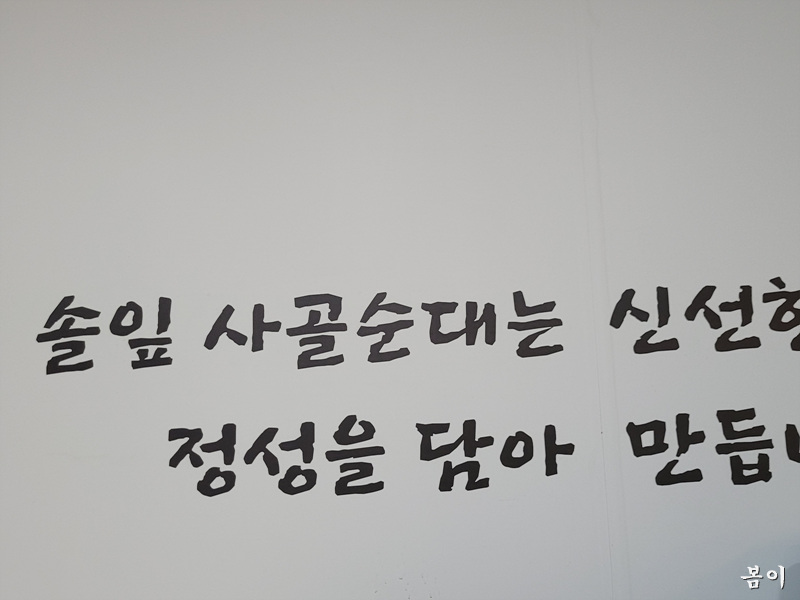 솔잎 사골순대는 신선한
정성을 담아 만듭니
봄이